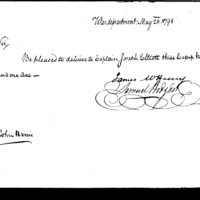 War department May 25. 1798
Sir,
Be pleased to deliver to Captain Joseph Elliott three Camp
and one axe —
James McHenry
Samuel Hodgdon
John Harris